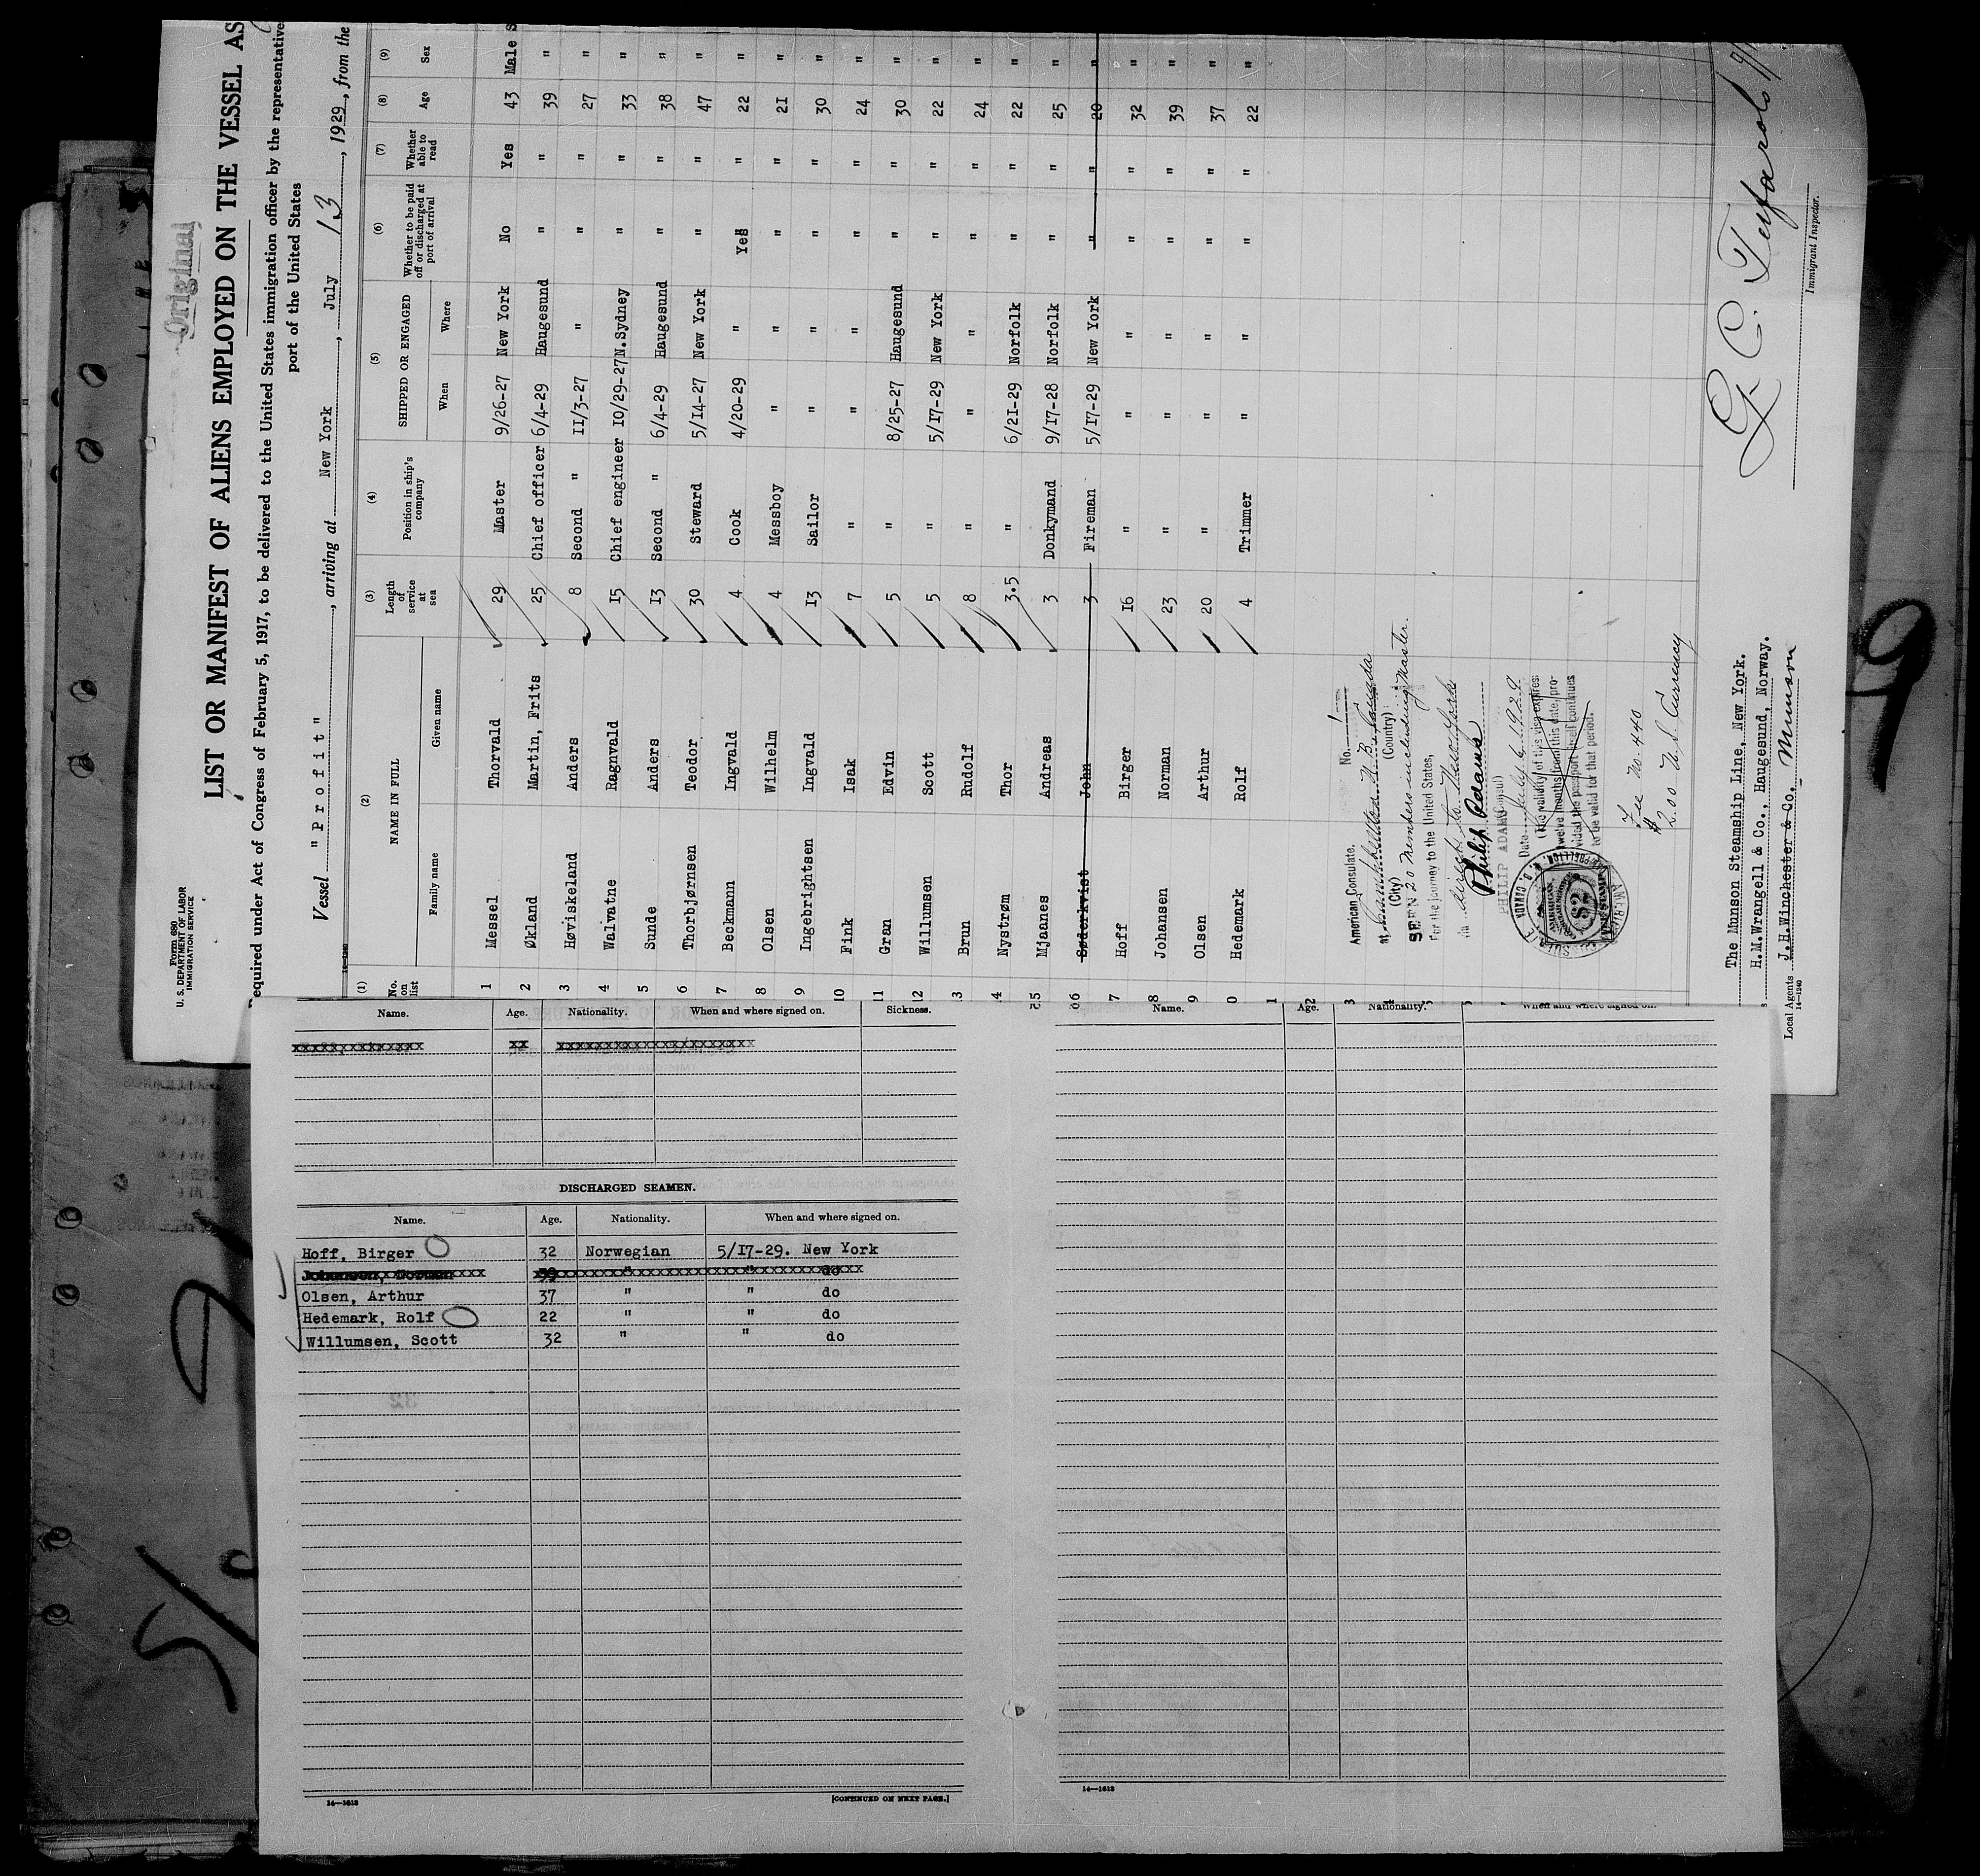 Original
Form 680
U. S. DEPARTMENT OF LABOR
IMMIGRATION SERVICE
LIST OR MANIFEST OF ALIENS EMPLOYED ON THE VESSEL AS
equired under Act of Congress of February 5, 1917, to be delivered to the United States immigration officer by the representative
port of the United States
Vessel "Profit", arriving at New York, July 13, 1929, from the
(1) (2) (3) (4) (5) (6) (7) (8) (9)
No. on list NAME IN FULL Length of service at sea Position in ship's company SHIPPED OR ENGAGED Whether to be paid off or discharged at port of arrival Whether able to read Age Sex
Family name Given name When Where
1 Messel Thorvald 29 Master 9/26-27 New York No Yes 43 Male
2 Økland Martin, Frits 25 Chief officer 6/4-29 Haugesund " " 39 "
3 Høviskeland Anders 8 Second " 11/3-27 " " " 27 "
4 Walvatne Ragnvald 15 Chief engineer 10/29-27 N.Sydney " " 33 "
5 Sunde Anders 13 Second " 6/4-29 Haugesund " " 38 "
6 Thorbjørnsen Teodor 30 Steward 5/14-27 New York " " 47 "
7 Beckmann Ingvald 4 Cook 4/20-29 " Yes " 22 "
8 Olsen Wilhelm 4 Messboy " " " " 21 "
9 Ingebrightsen Ingvald 13 Sailor " " " " 30 "
10 Fink Isak 7 " " " " " 24 "
11 Gran Edvin 5 " 8/25-27 Haugesund " " 30 "
12 Willumsen Scott 5 " 5/17-29 New York " " 22 "
3 Brun Rudolf 8 " " " " " 24 "
4 Nystrøm Thor 3.5 " 6/21-29 Norfolk " " 22 "
5 Mjaanes Andreas 3 Donkymand 9/17-28 Norfolk " " 25 "
6 Søderkvist John 3 Fireman 5/17-29 New York " " 20 "
7 Hoff Birger 16 " " " " " 32 "
8 Johansen Norman 23 " " " " " 39 "
9 Olsen Arthur 20 " " " " " 37 "
0 Hedemark Rolf 4 Trimmer " " " " 22 "
1
2
3
4
5
American Consulate, No. 1
at Campbellton N.B. Canada
(City) (Country)
SEEN 20 members including master.
For the journey to the United States,
direct to New York
Philip Adams
PHILIP ADAMS Consul
Date July 6 1929
(The validity of this visa expires
twelve months from this date, pro-
vided the passport itself continues
to be valid for that period.
Fee No 440
$2.00 U S Currency
The Munson Steamship Line, New York.
H.M.Wrangell & Co., Haugesund, Norway.
Local Agents J.H.Winchester & Co. Munson
14—1240
Immigrant Inspector.
9
Name. Age. Nationality. When and where signed on. Sickness.
DISCHARGED SEAMEN.
Name. Age. Nationality. When and where signed on.
Hoff, Birger 32 Norwegian 5/17-29. New York
Johansen, Norman 39 " " do
Olsen, Arthur 37 " " do
Hedemark, Rolf 22 " " do
Willumsen, Scott 32 " " do
14—1613
[CONTINUED ON NEXT PAGE.]
Name. Age. Nationality. When and where signed on.
14—1613